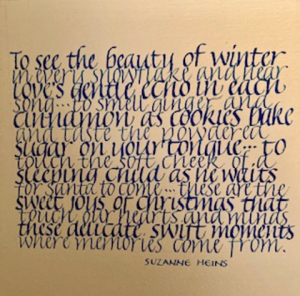 To see the beauty of winter
in every snowflake and hear
love's gentle echo in each
song... to smell ginger and
cinnamon as cookies bake
and taste the powdered
sugar on your tongue... to
touch the soft cheek of a
sleeping child as he waits
for santa to come... these are the
sweet joys of Christmas that
touch our hearts and minds
these delicate, swift moments
where memories come from.
SUZANNE HEINS